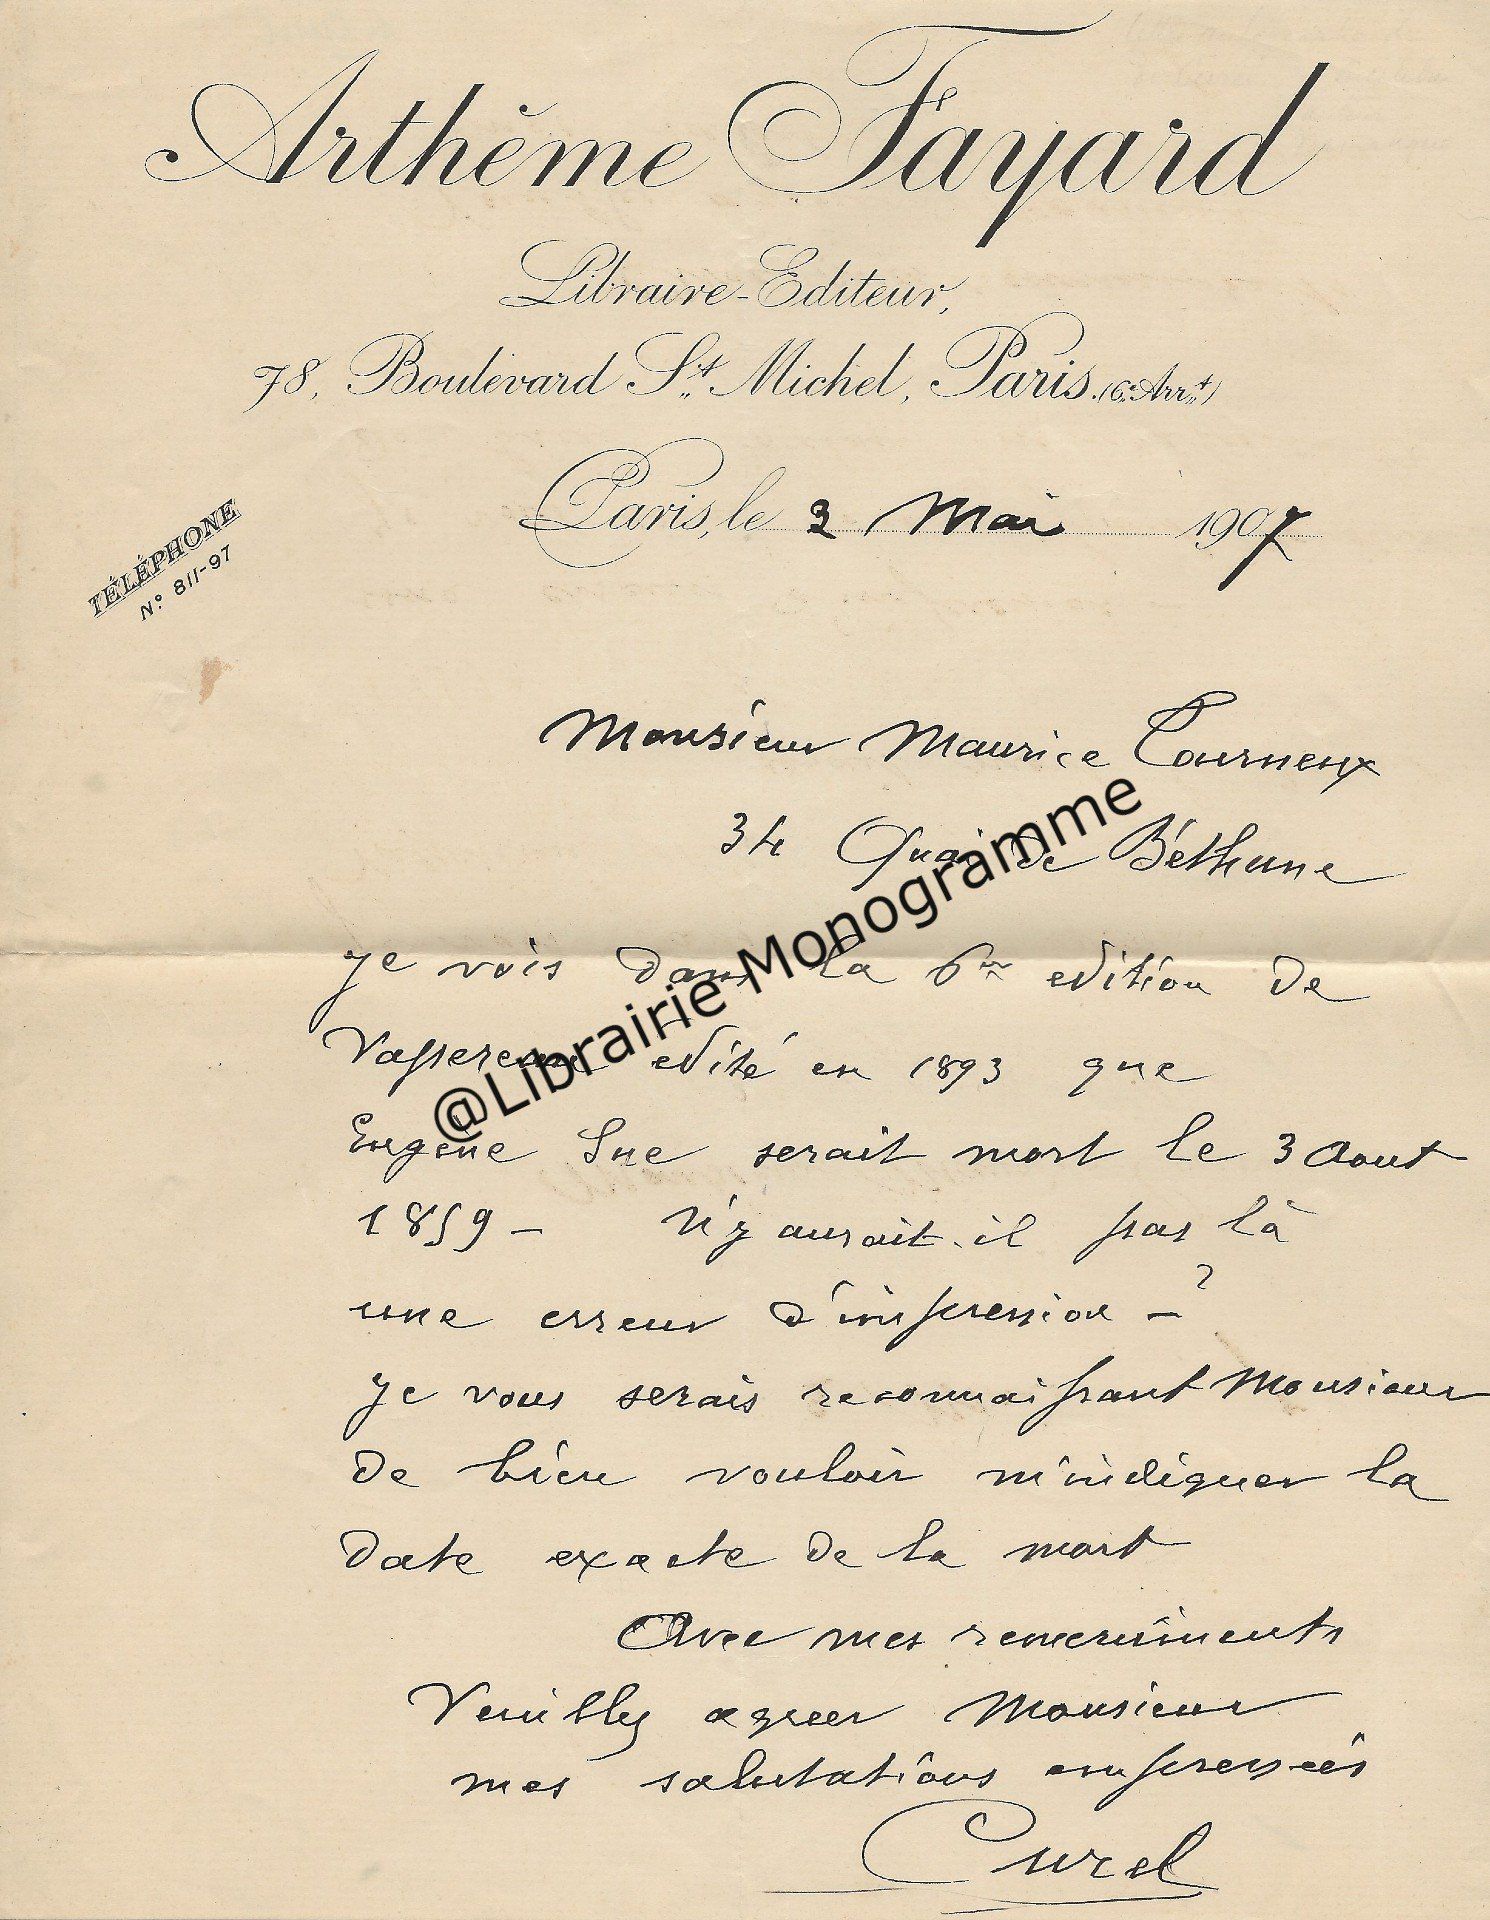 Arthème Fayard
Libraire-Editeur,
78, Boulevard St. Michel, Paris. (6e Arrt)
Paris, le 2 Mai 1907
TÉLÉPHONE
No. 811-97
Monsieur Maurice Tourneux
34 Quai de Béthune
Je vois dans la 6me edition de
Vapereau edité en 1893 que
Eugène Sue serait mort le 3 Aout
1859 - N'y aurait-il pas là
une erreur d'impression - ?
Je vous serais reconnaissant Monsieur
de bien vouloir m'indiquer la
date exacte de la mort
Avec mes remerciments
Veuillez agreer Monsieur
mes salutations empressées
Curel
@Librairie-Monogramme